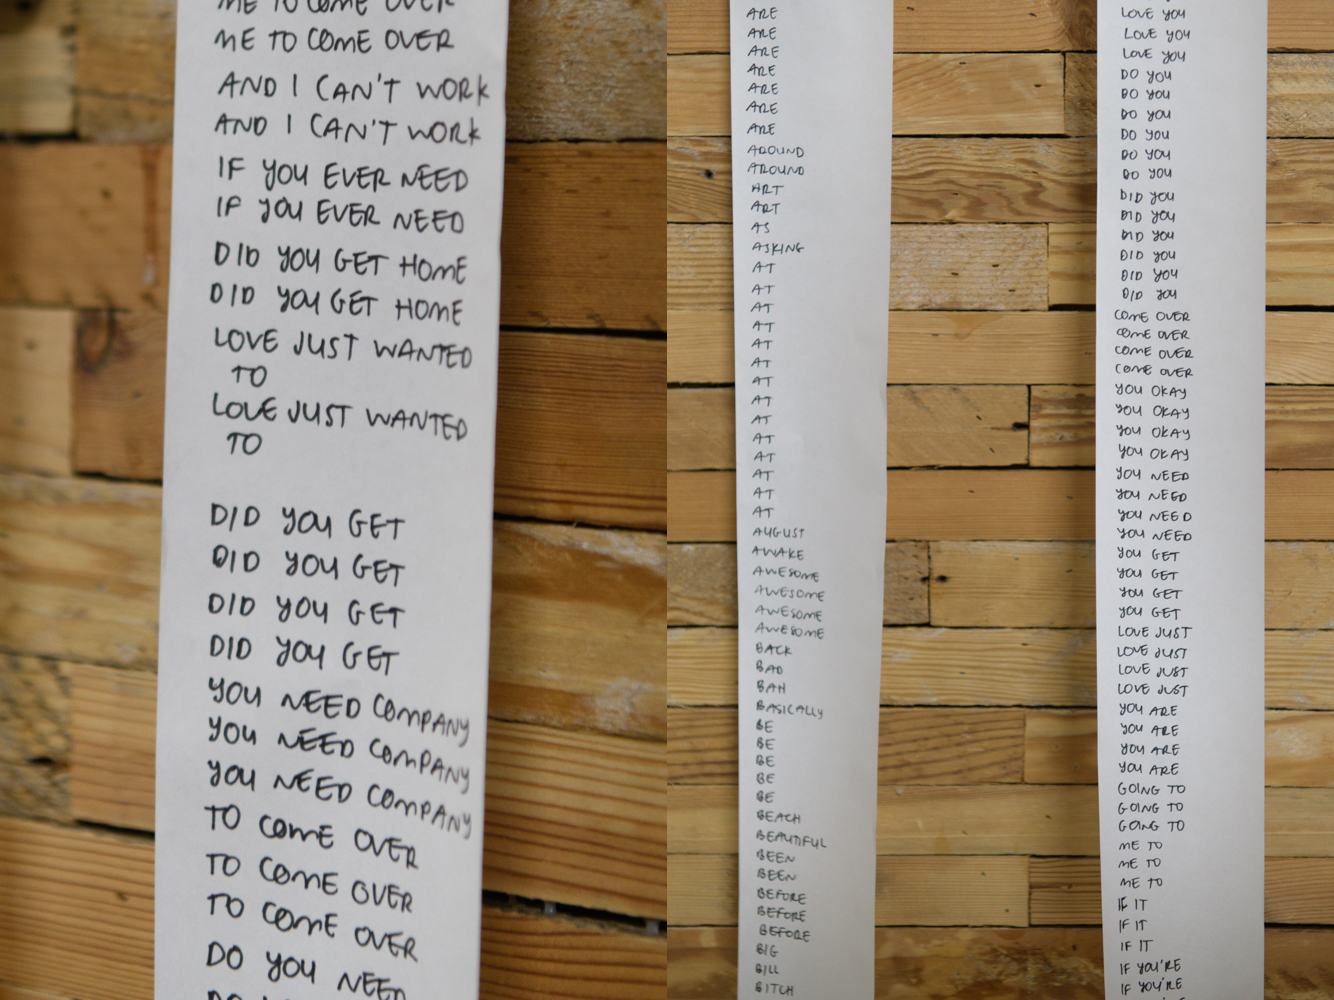 ME TO COME OVER
ME TO COME OVER
AND I CAN'T WORK
AND I CAN'T WORK
IF YOU EVER NEED
IF YOU EVER NEED
DID YOU GET HOME
DID YOU GET HOME
LOVE JUST WANTED
TO
LOVE JUST WANTED
TO
DID YOU GET
DID YOU GET
DID YOU GET
DID YOU GET
YOU NEED COMPANY
YOU NEED COMPANY
YOU NEED COMPANY
TO COME OVER
TO COME OVER
TO COME OVER
DO YOU NEED
ARE
ARE
ARE
ARE
ARE
ARE
ARE
AROUND
AROUND
ART
ART
AS
ASKING
AT
AT
AT
AT
AT
AT
AT
AT
AT
AT
AT
AT
AT
AT
AUGUST
AWAKE
AWESOME
AWESOME
AWESOME
AWESOME
BACK
BAD
BAH
BASICALLY
BE
BE
BE
BE
BE
BEACH
BEAUTIFUL
BEEN
BEEN
BEFORE
BEFORE
BEFORE
BIG
BILL
BITCH
LOVE YOU
LOVE YOU
LOVE YOU
DO YOU
DO YOU
DO YOU
DO YOU
DO YOU
DO YOU
DID YOU
DID YOU
DID YOU
DID YOU
DID YOU
DID YOU
COME OVER
COME OVER
COME OVER
COME OVER
YOU OKAY
YOU OKAY
YOU OKAY
YOU OKAY
YOU NEED
YOU NEED
YOU NEED
YOU NEED
YOU GET
YOU GET
YOU GET
YOU GET
LOVE JUST
LOVE JUST
LOVE JUST
LOVE JUST
YOU ARE
YOU ARE
YOU ARE
YOU ARE
GOING TO
GOING TO
GOING TO
ME TO
ME TO
ME TO
IF IT
IF IT
IF IT
IF YOU'RE
IF YOU'RE